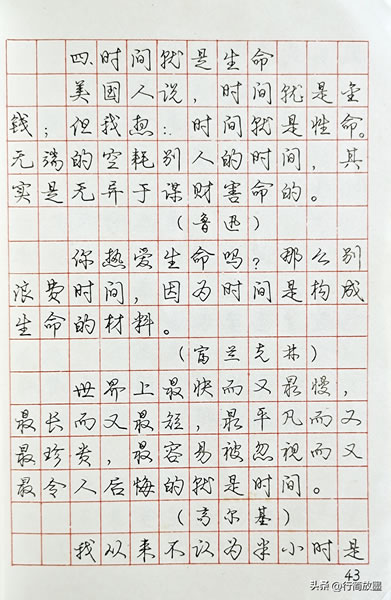 四.时间就是生命
美国人说，时间就是金
钱；但我想：时间就是性命。
无端的空耗别人的时间，其
实是无异于谋财害命的。
（鲁迅）
你热爱生命吗？那么别
浪费时间，因为时间是构成
生命的材料。
（富兰克林）
世界上最快而又最慢，
最长而又最短，最平凡而又
最珍贵，最容易被忽视而又
最令人后悔的就是时间。
（高尔基）
我从来不认为半小时是
43
头条@行简放墨